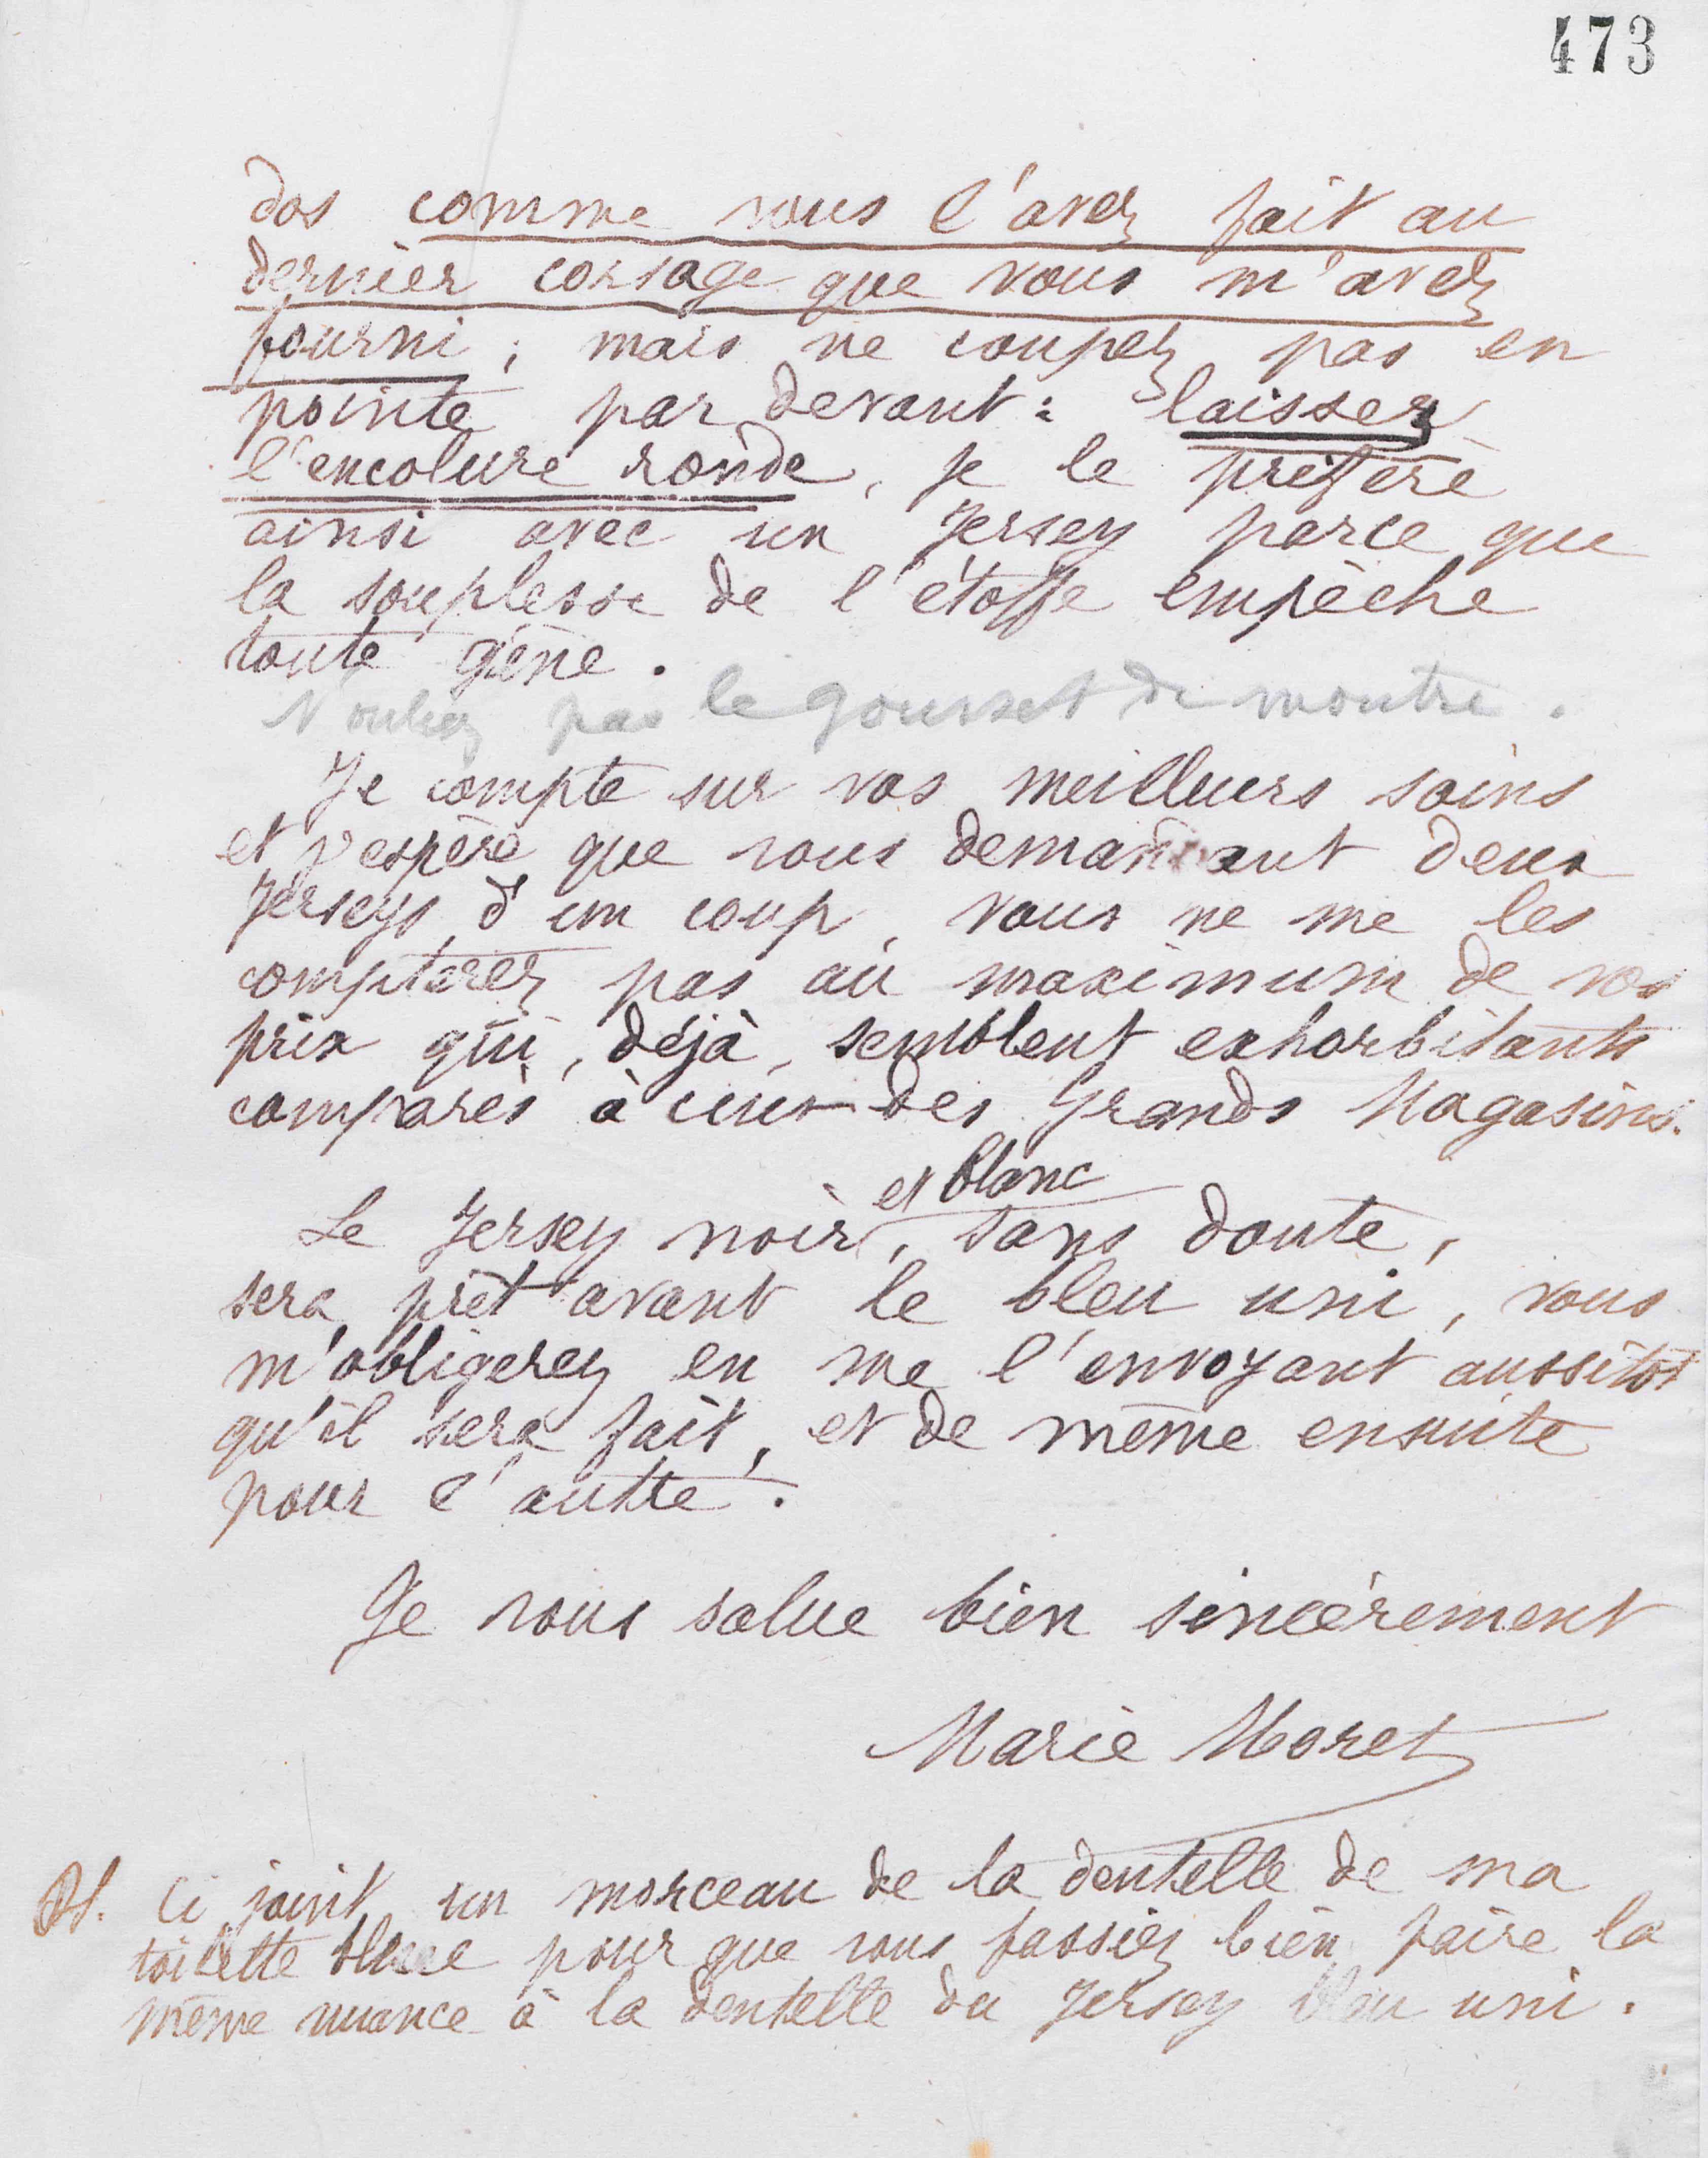 473
dos comme vous l'avez fait au
dernier corsage que vous m'avez
fourni ; mais ne coupez pas en
pointe par devant : laissez
l'encolure ronde, je le préfère
ainsi avec un Jersey parce que
la souplesse de l'étoffe empêche
toute gêne.
N'oubliez pas le gousset de montre.
Je compte sur vos meilleurs soins
et j'espère que vous demandant deux
Jerseys d'un coup, vous ne me les
compterez pas au maximum de vos
prix qui, déjà, semblent exhorbitants
comparés à ceux des Grands Magasins.
et blanc
Le Jersey noir, sans doute,
sera prêt avant le bleu uni, vous
m'obligerez en me l'envoyant aussitôt
qu'il sera fait, et de même ensuite
pour l'autre.
Je vous salue bien sincèrement
Marie Moret
PS. Ci joint un morceau de la dentelle de ma
toilette bleue pour que vous fassiez bien faire la
même nuance à la dentelle du Jersey bleu uni.